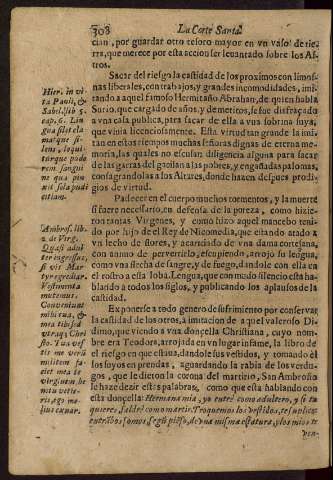 308
La Corte Santa
cian, por guardar otro tesoro mayor en vn vaso de tie-
rra, que merece por esta accion ser leuantado sobre los As-
tros.
Sacar del riesgo la castidad de los proximos con limos-
nas liberales, con trabajos, y grandes incomodidades, imi-
tando a aquel famoso Hermitaño Abrahan, de quien habla
Surio, que cargado de años, y de meritos, se fue disfraçado
a vna casa publica, para sacar de ella a vna sobrina suya,
que viuia licenciosamente. Esta virtud tan grande la imi-
tan en estos tiempos muchas señoras dignas de eterna me-
moria, las quales no escusan diligencia alguna para sacar
de las garras del gauilan a las pobres, y engañadas palomas,
consagrandolas a los Altares, donde hazen despues prodi-
gios de virtud.
Padecer en el cuerpo muchos tormentos, y la muerte
si fuere necessario, en defensa de la pureza, como hizie-
ron tantas Virgenes, y como hizo aquel mancebo teni-
do por hijo de el Rey de Nicomedia, que estando atado a
vn lecho de flores, y acariciado de vna dama cortesana,
con animo de peruertirlo, escupiendo, arrojò su lengua,
como vna flecha de sangre, y de fuego, dandole con ella en
el rostro a esta loba. Lengua, que con mudo silencio està ha-
blando a todos los siglos, y publicando los aplausos de la
castidad.
Exponerse a todo genero de sufrimiento por conseruar
la castidad de los otros, a imitacion de aquel valeroso Di-
dimo, que viendo a vna donçella Christiana, cuyo nom-
bre era Teodora, arrojada en vn lugar infame, la librò de
el riesgo en que estaua, dandole sus vestidos, y tomando èl
los suyos en prendas, aguardando la rabia de los verdu-
gos, que le dieron la corona del martirio, San Ambrosio
le haze dezir estas palabras, como que esta hablando con
esta donçella: Hermana mia, yo entrè como adultero, y si tu
quieres, saldrè como martir. Troquemos los vestidos, te suplico;
entrãbos somos, segũ piẽso, de vna misma estatura, y los mios te
ven-
Hier. in vi-
ta Pauli, &
Sabel. lib 5.
cap. 6. Lin
gua silet cla
mat que si-
lens, loqui-
turque pudo
rem sangui
ne que pin-
xit sola pudi
citiam.
Ambros. lib.
2. de Virg.
Quasi adul
ter ingressus,
si vis Mar-
tyr egrediar.
Vestimenta
mutemus.
Conueniunt
mihi tua, &
mea tibi sed
vtraq; Chri-
sto. Tua ves-
tis me verũ
militem fa-
ciet mea te
virginem be
ne tu vestie-
ris, ego me-
lius exuar.